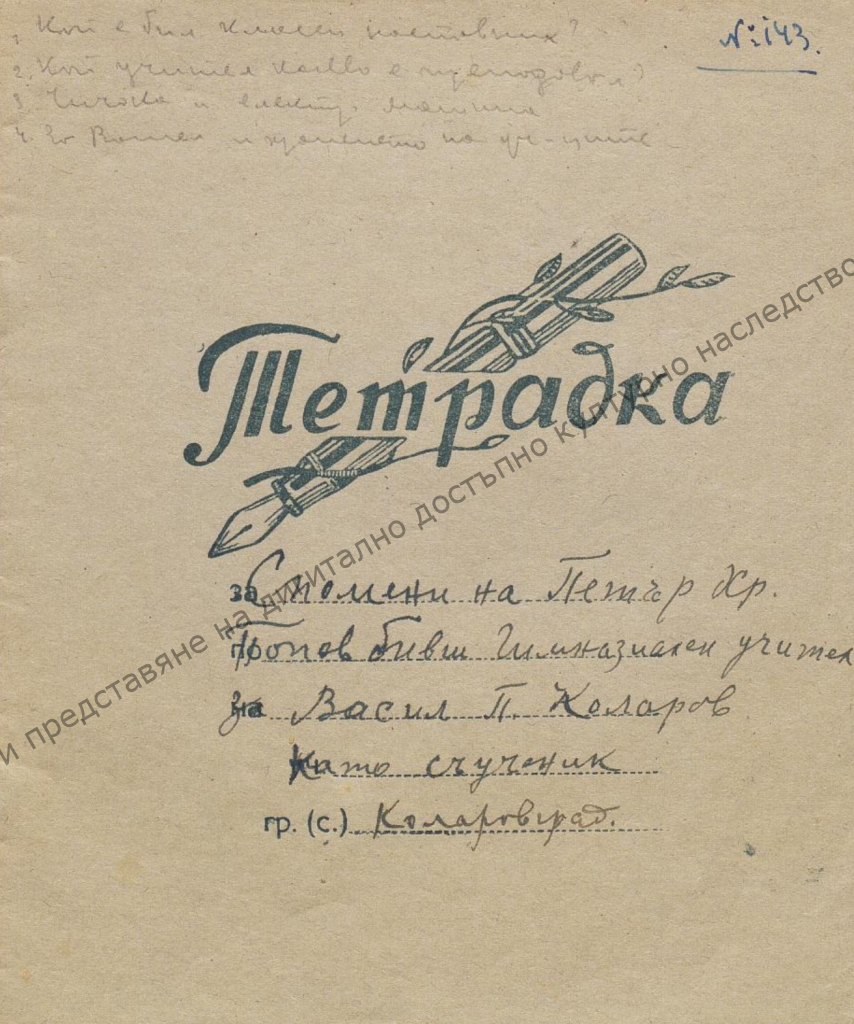 1. Кой е бил класен наставник?
№ 143.
2. Кой учител какво е преподавал?
3. и електр. машина
4. За и на уч-ците
Тетрадка
за Спомени на Петър Хр.
Попов бивш Гимназиален учител
за Васил П. Коларов
Като съученик
гр. (с.) Коларовград.
и представяне на дигитално достъпно културно наследство